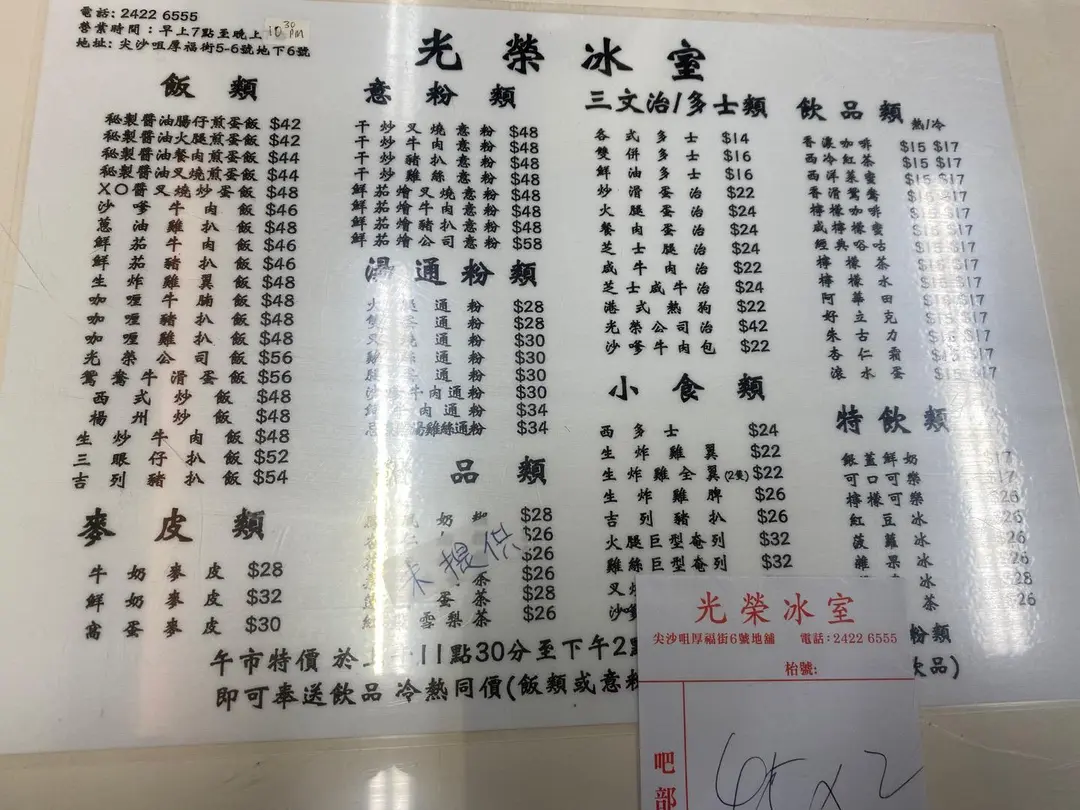 電話: 2422 6555
營業時間：早上7點至晚上 10 30 PM
地址: 尖沙咀厚福街5-6號地下6號
光榮冰室
飯類
秘製醬油腸仔煎蛋飯 $42
秘製醬油火腿煎蛋飯 $42
秘製醬油餐肉煎蛋飯 $44
秘製醬油叉燒煎蛋飯 $44
XO醬叉燒炒蛋飯 $48
沙嗲牛肉飯 $46
蔥油雞扒飯 $48
鮮茄牛肉飯 $46
鮮茄豬扒飯 $46
生炸雞翼飯 $48
咖喱牛腩飯 $48
咖喱豬扒飯 $48
咖喱雞扒飯 $48
光榮公司飯 $56
鴛鴦牛滑蛋飯 $56
西式炒飯 $48
楊州炒飯 $48
生炒牛肉飯 $48
三眼仔扒飯 $52
吉列豬扒飯 $54
麥皮類
牛奶麥皮 $28
鮮奶麥皮 $32
窩蛋麥皮 $30
意粉類
干炒叉燒意粉 $48
干炒牛肉意粉 $48
干炒豬扒意粉 $48
干炒雞絲意粉 $48
鮮茄燴叉燒意粉 $48
鮮茄燴牛肉意粉 $48
鮮茄燴豬扒意粉 $48
鮮茄燴公司意粉 $58
湯通粉類
通粉 $28
通粉 $28
通粉 $30
通粉 $30
通粉 $30
牛肉通粉 $34
湯雞絲通粉 $34
品類
奶 $28
$26
$26
茶 $26
蛋茶 $28
雪梨茶 $26
未提供
三文治/多士類
各式多士 $14
雙併多士 $16
鮮油多士 $16
炒滑蛋治 $22
火腿蛋治 $24
餐肉蛋治 $24
芝士腿治 $24
咸牛肉治 $22
芝士咸牛治 $24
港式熱狗 $22
光榮公司治 $42
沙嗲牛肉包 $22
小食類
西多士 $24
生炸雞翼 $22
生炸雞全翼(2隻) $22
生炸雞脾 $26
吉列豬扒 $26
火腿巨型奄列 $32
雞絲巨型奄列 $32
叉
沙嗲
飲品類 熱/冷
香濃咖啡 $15 $17
西冷紅茶 $15 $17
西洋菜蜜 $15 $17
香滑鴛鴦 $17
檸檬咖啡 $17
咸檸檬蜜
經典谷咕
檸檬茶
檸檬水
阿華田 $17
好立克 $17
朱古力 $17
杏仁霜 $17
滾水蛋 $17
特飲類
銀蓋鮮奶 $17
可口可樂 17
檸檬可樂 $26
紅豆冰 26
菠蘿冰 26
雜果冰
冰 $28
茶 26
午市特價 於 11點30分至下午2點 粉類
即可奉送飲品 冷熱同價(飯類或意粉 飲品)
光榮冰室
尖沙咀厚福街6號地舖 電話: 2422 6555
枱號:
吧部